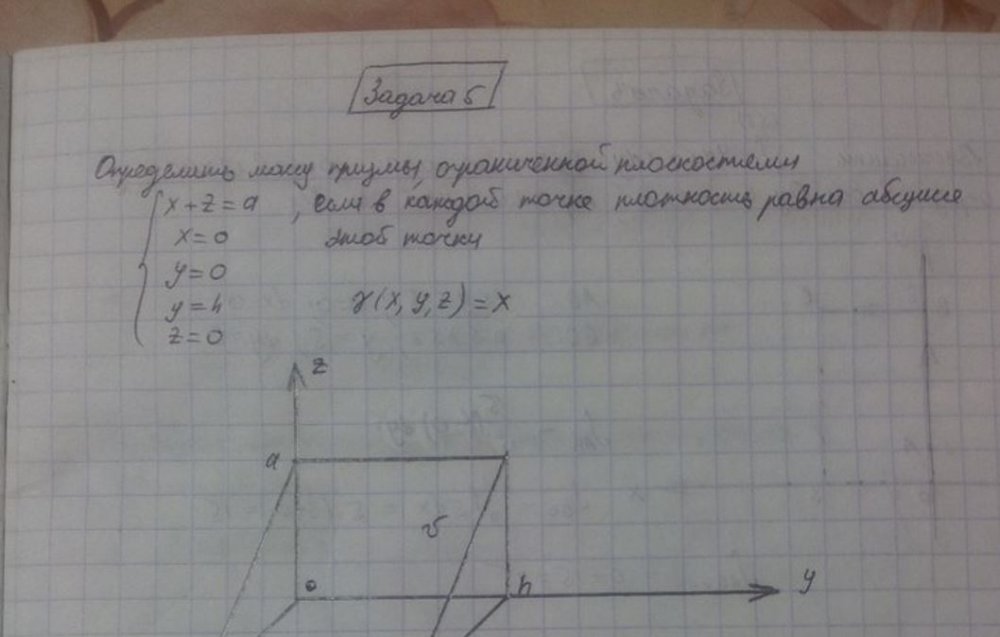 Задача 5
Определить массу призмы, ограниченной плоскостями
x+z=a , если в каждой точке плотность равна абсциссе
x=0 этой точки
y=0
y=h γ(x, y, z) = x
z=0
z
a
v
0 h y